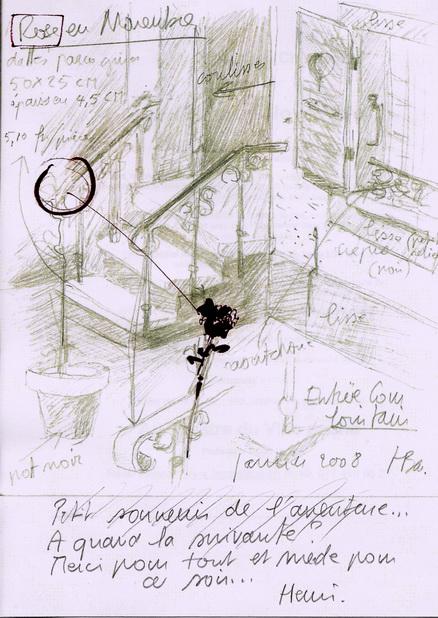 Rose en Novembre
lisse
dalles parc gris
50 x 25 cm
épaisseur 4,5 cm
coulisses
5,10 fr/pièce
lisse
crépie
(non)
lisse
caoutchouc
Entrée Cour
Lointain
pot noir
Janvier 2008
Petit souvenir de l'aventure...
A quand la suivante ?
Merci pour tout et merde pour
ce soir...
Henri.